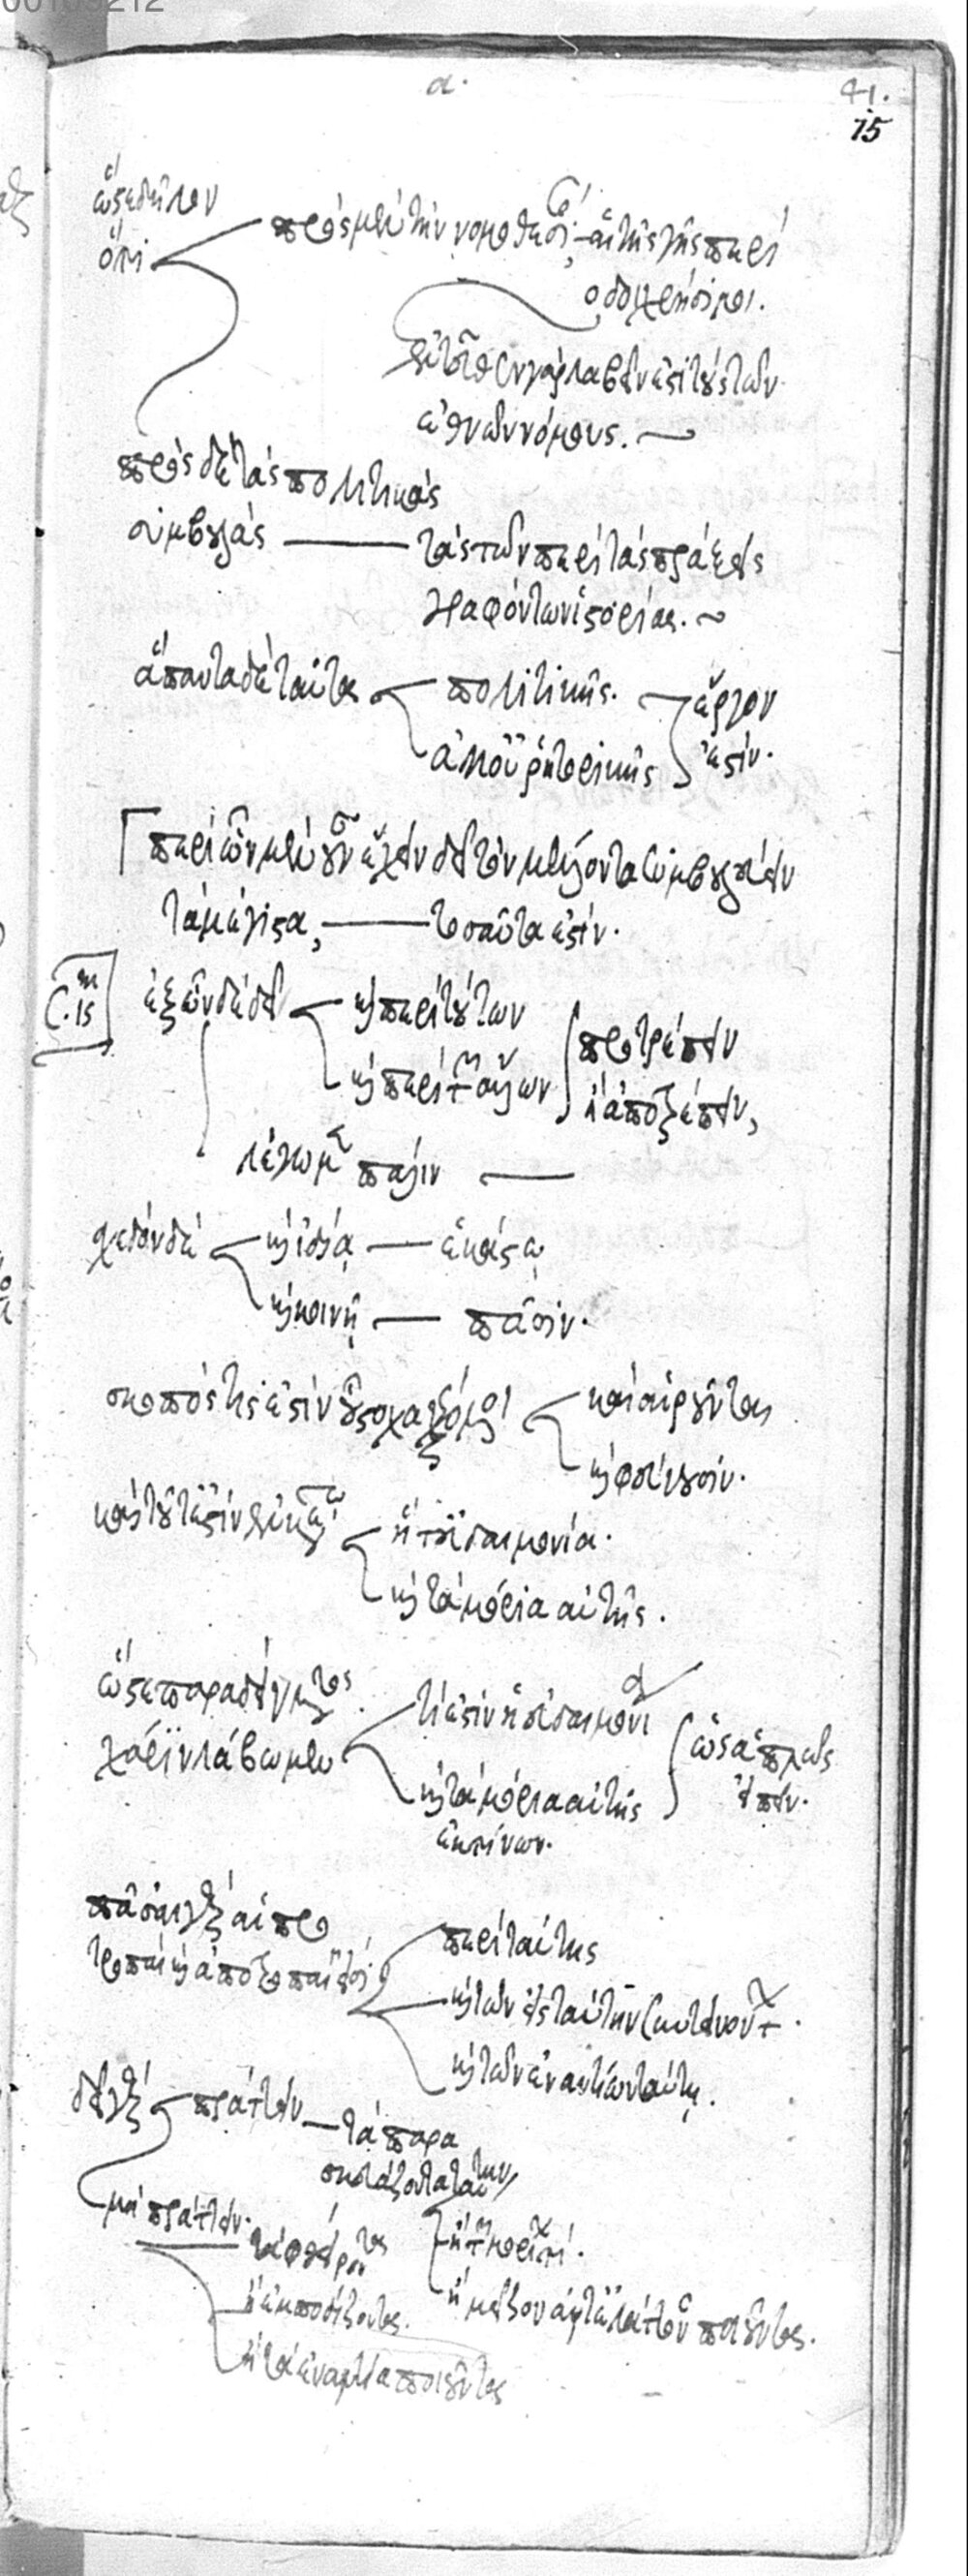 00105212
α.
41.
15
ὥστε δῆλον
ὅτι
πρὸς μὲν τὴν νομοθεσίαν αἱ τῆς γῆς περί
οδοι χρήσιμοι.
ἐντεῦθεν γὰρ λαβεῖν ἐστὶ τοὺς τῶν
ἐθνῶν νόμους.
πρὸς δὲ τὰς πολιτικὰς
συμβουλὰς
τὰς τῶν περὶ τὰς πράξεις
γραφόντων ἱστορίας.
ἅπαντα δὲ ταῦτα
πολιτικῆς.
ἀλλ' οὐ ῥητορικῆς
ἔργον
ἐστίν.
περὶ ὧν μὲν οὖν ἔχειν δεῖ τὸν μέλλοντα συμβουλεύειν
τὰ μέγιστα,
τοσαῦτα ἐστίν.
C. 15
ἐξ ὧν δὲ δεῖ
καὶ περὶ τούτων
καὶ περὶ τῶν ἄλλων
προτρέπειν
ἢ ἀποτρέπειν,
λέγωμεν πάλιν
σχεδὸν δὲ
καὶ ἰδίᾳ
ἑκάστῳ
καὶ κοινῇ
πᾶσιν.
σκοπός τις ἐστὶν οὗ στοχαζόμενοι
καὶ αἱροῦνται
καὶ φεύγουσιν.
καὶ τοῦτ' ἐστὶν ἐν κεφαλαίῳ
ἥ τ' εὐδαιμονία.
καὶ τὰ μόρια αὐτῆς.
ὥστε παραδείγματος
χάριν λάβωμεν
τί ἐστὶν ἡ εὐδαιμονία
καὶ τὰ μόρια αὐτῆς
ἐκ τίνων.
ὡς ἁπλῶς
εἰπεῖν.
πᾶσαι γὰρ αἱ προ
τροπαὶ καὶ ἀποτροπαὶ εἰσι
περὶ ταύτης
καὶ τῶν εἰς ταύτην συντεινόντων.
καὶ τῶν ἐναντίων ταύτῃ.
δεῖ γὰρ
πράττειν
τὰ παρα
σκευάζοντα ταύτην
μὴ πράττειν.
τὰ φθείροντα
ἢ ἐμποδίζοντα.
ἢ τὰ ἐναντία ποιοῦντα
ἢ τῶν μορίων τι.
ἢ μεῖζον ἀντ' ἐλάττονος ποιοῦντα.